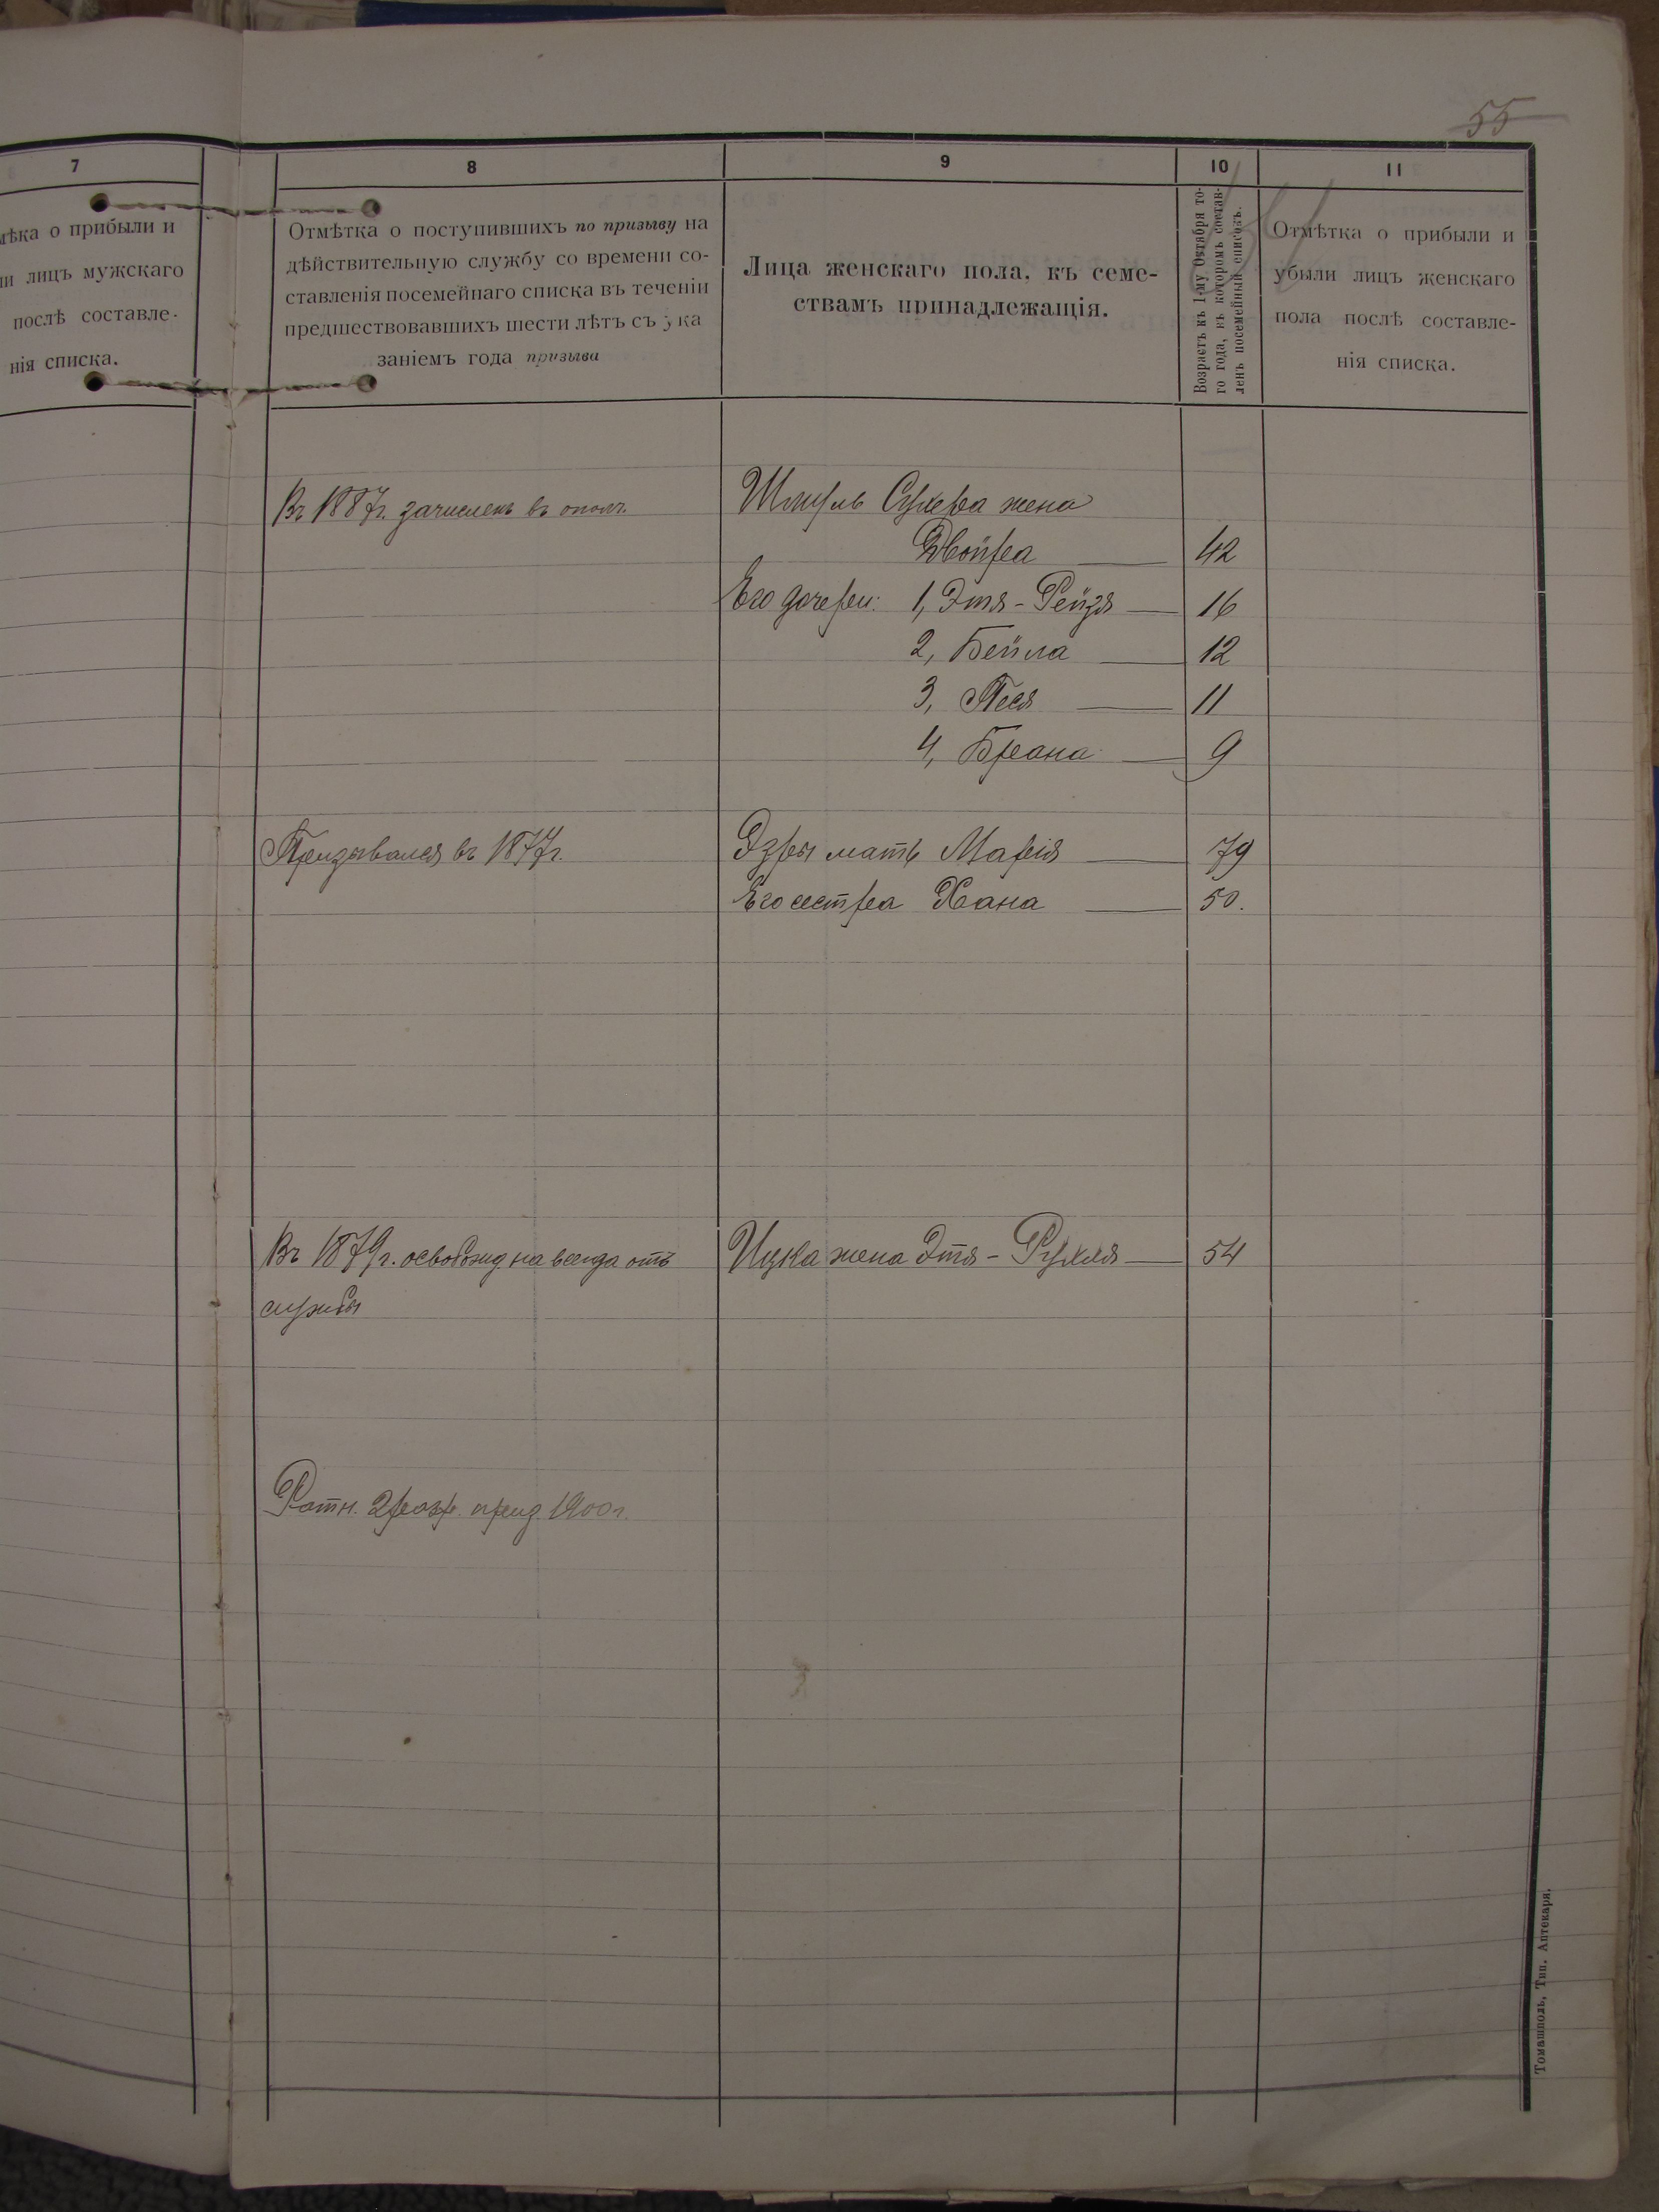 55
7
8
9
10
11
мѣка о прибыли и
ли лицъ мужскаго
послѣ составле-
нія списка.
Отмѣтка о поступившихъ по призыву на
дѣйствительную службу со времени со-
ставленія посемейнаго списка въ теченіи
предшествовавшихъ шести лѣтъ съ ука
заніемъ года призыва
Лица женскаго пола, къ семе-
ствамъ принадлежащія.
Возрастъ къ 1-му Октября то-
го года, къ которомъ состав-
ленъ посемейный списокъ.
Отмѣтка о прибыли и
убыли лицъ женскаго
пола послѣ составле-
нія списка.
Въ 1887г. зачисленъ въ ополч.
Шмуль Сухера жена
Двойра 42
Его дочери: 1, Этя-Рейзя 16
2, Бейла 12
3, Песя 11
4, Брана 9
Призывался въ 1877г.
Эзры мать Марія 79
Его сестра Хана 50.
Въ 1879г. освобожд. на всегда отъ
службы
Ицка жена Этя-Рухля 54
Ратн. 2 разр. приз. 1900г.
Томашполь, Тип. Аптекаря.